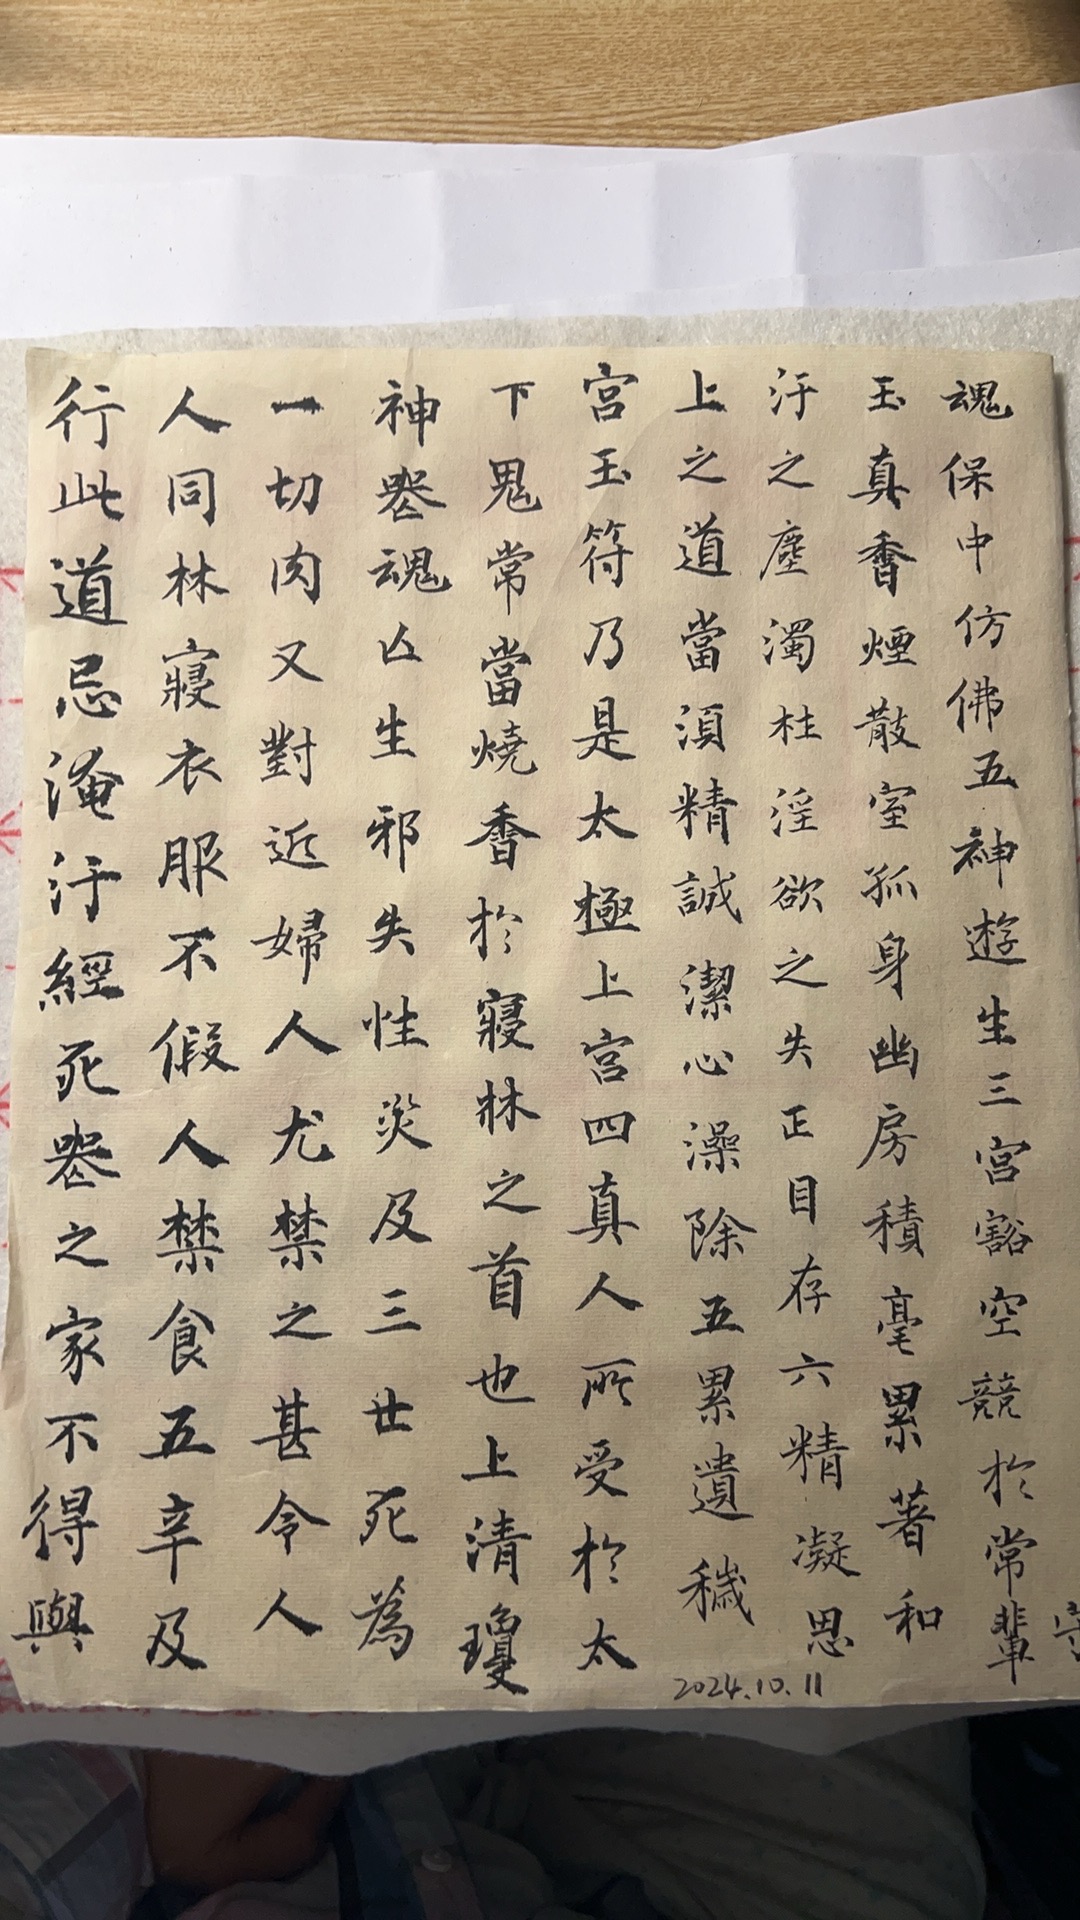 魂保中仿佛五神遊生三宮豁空競於常輩
玉真香煙散室孤身幽房積毫累著和
汙之塵濁柱淫欲之失正目存六精凝思
上之道當須精誠潔心澡除五累遺穢
宮玉符乃是太極上宮四真人所受於太
下鬼常當燒香於寢牀之首也上清瓊
神喪魂亾生邪失性災及三世死為
一切肉又對近婦人尤禁之甚令人
人同牀寢衣服不假人禁食五辛及
行此道忌淹汙經死喪之家不得與
2024.10.11